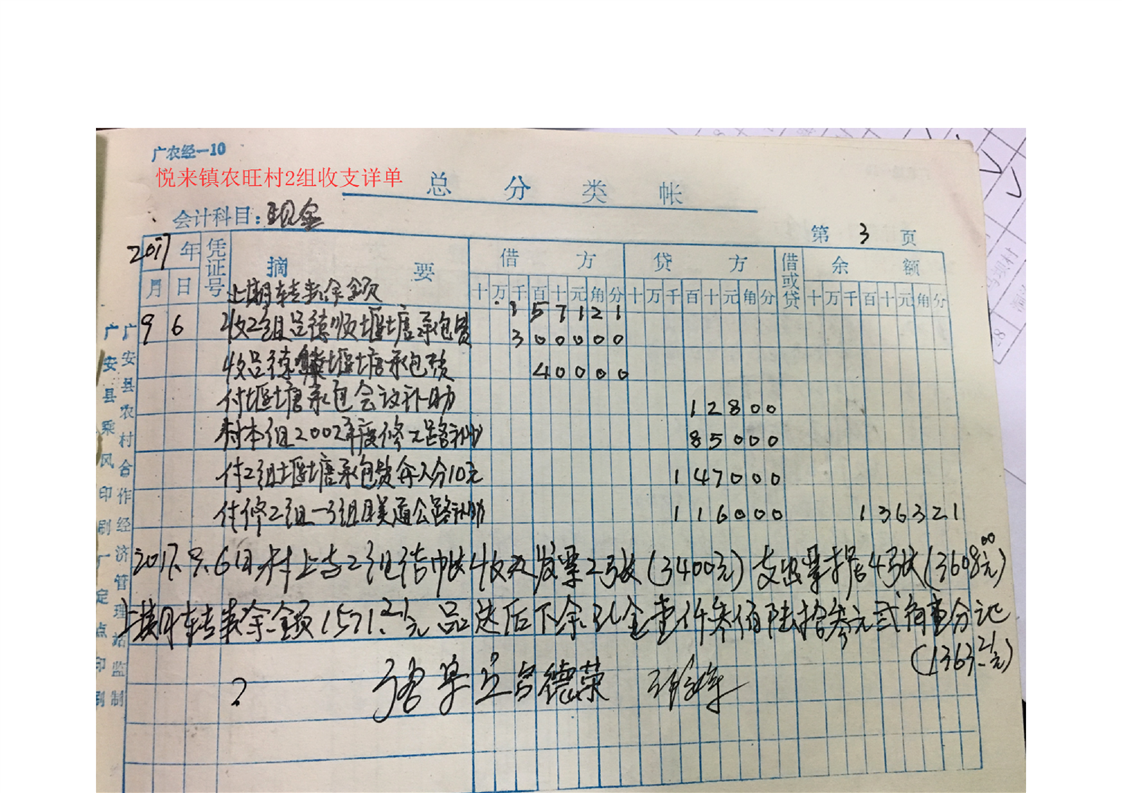 广农经—10
悦来镇农旺村2组收支详单
总分类帐
会计科目：现金
第 3 页
2017年 凭证号 摘要 借方 贷方 借或贷 余额
月 日 十万千百十元角分 十万千百十元角分 十万千百十元角分
上期转来余额 157121
9 6 收2组吕德顺堰塘承包费 300000
收吕德 堰塘承包费 40000
付堰塘承包会议补助 12800
付本组2002年度修公路补助 85000
付2组堰塘承包费每人分10元 147000
付修2组—3组联道公路补助 116000 136321
2017.9.6日.村上与2组结帐收入发票2张(3400元)支出票据4张(3608.00元)
上期转来余额1571.21元品迭后下余现金壹仟叁佰陆拾叁元贰角壹分正
(1363.21元)
吕德荣
广安县乘风印刷厂定点印刷
广安县农村合作经济管理站监制